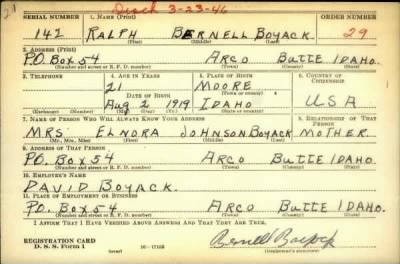 Disch 3-23-46
SERIAL NUMBER 1. NAME (Print) ORDER NUMBER
142 RALPH BERNELL BOYACK 29
(First) (Middle) (Last)
2. ADDRESS (Print)
P.O. BOX 54 ARCO BUTTE IDAHO.
(Number and street or R. F. D. number) (Town) (County) (State)
3. TELEPHONE 4. AGE IN YEARS 5. PLACE OF BIRTH 6. COUNTRY OF CITIZENSHIP
21 MOORE
DATE OF BIRTH (Town or county)
AUG 2 1919 IDAHO USA
(Exchange) (Number) (Mo.) (Day) (Yr.) (State or country)
7. NAME OF PERSON WHO WILL ALWAYS KNOW YOUR ADDRESS 8. RELATIONSHIP OF THAT PERSON
MRS ELNORA JOHNSON BOYACK MOTHER.
(Mr., Mrs., Miss) (First) (Middle) (Last)
9. ADDRESS OF THAT PERSON
P.O. BOX 54 ARCO BUTTE IDAHO.
(Number and street or R. F. D. number) (Town) (County) (State)
10. EMPLOYER'S NAME
DAVID BOYACK.
11. PLACE OF EMPLOYMENT OR BUSINESS
P.O. BOX 54 ARCO BUTTE IDAHO.
(Number and street or R. F. D. number) (Town) (County) (State)
I AFFIRM THAT I HAVE VERIFIED ABOVE ANSWERS AND THAT THEY ARE TRUE.
REGISTRATION CARD
D. S. S. Form 1 16-17105 Bernell Boyack
(Registrant's signature)